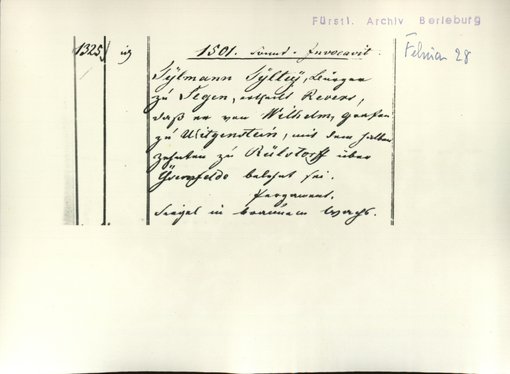 Fürstl. Archiv Berleburg
1325. 1501. sonnt. Invocavit. Februar 28
Sylmann Sylley, Bürger
zu Segen, ertheilt Revers,
daß er von Wilhelm, grafen
zu Witgenstein, mit dem halben
zehnten zu Rülstorff über
belehnt sei.
Pergament.
Siegel in braunem Wachs.